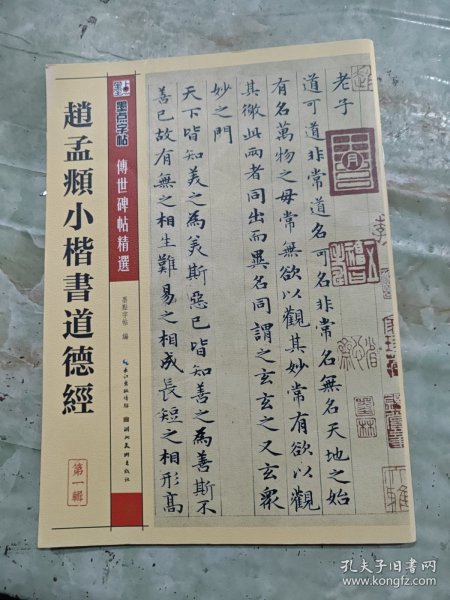 趙孟頫小楷書道德經
第一輯
墨点字帖
傳世碑帖精選
墨點字帖 編
長江出版傳媒
湖北美術出版社
老子
道可道非常道名可名非常名無名天地之始
有名萬物之母常無欲以觀其妙常有欲以觀
其徼此兩者同出而異名同謂之玄玄之又玄衆
妙之門
天下皆知美之為美斯惡已皆知善之為善斯不
善已故有無之相生難易之相成長短之相形高
孔夫子旧书网
www.kongfz.com